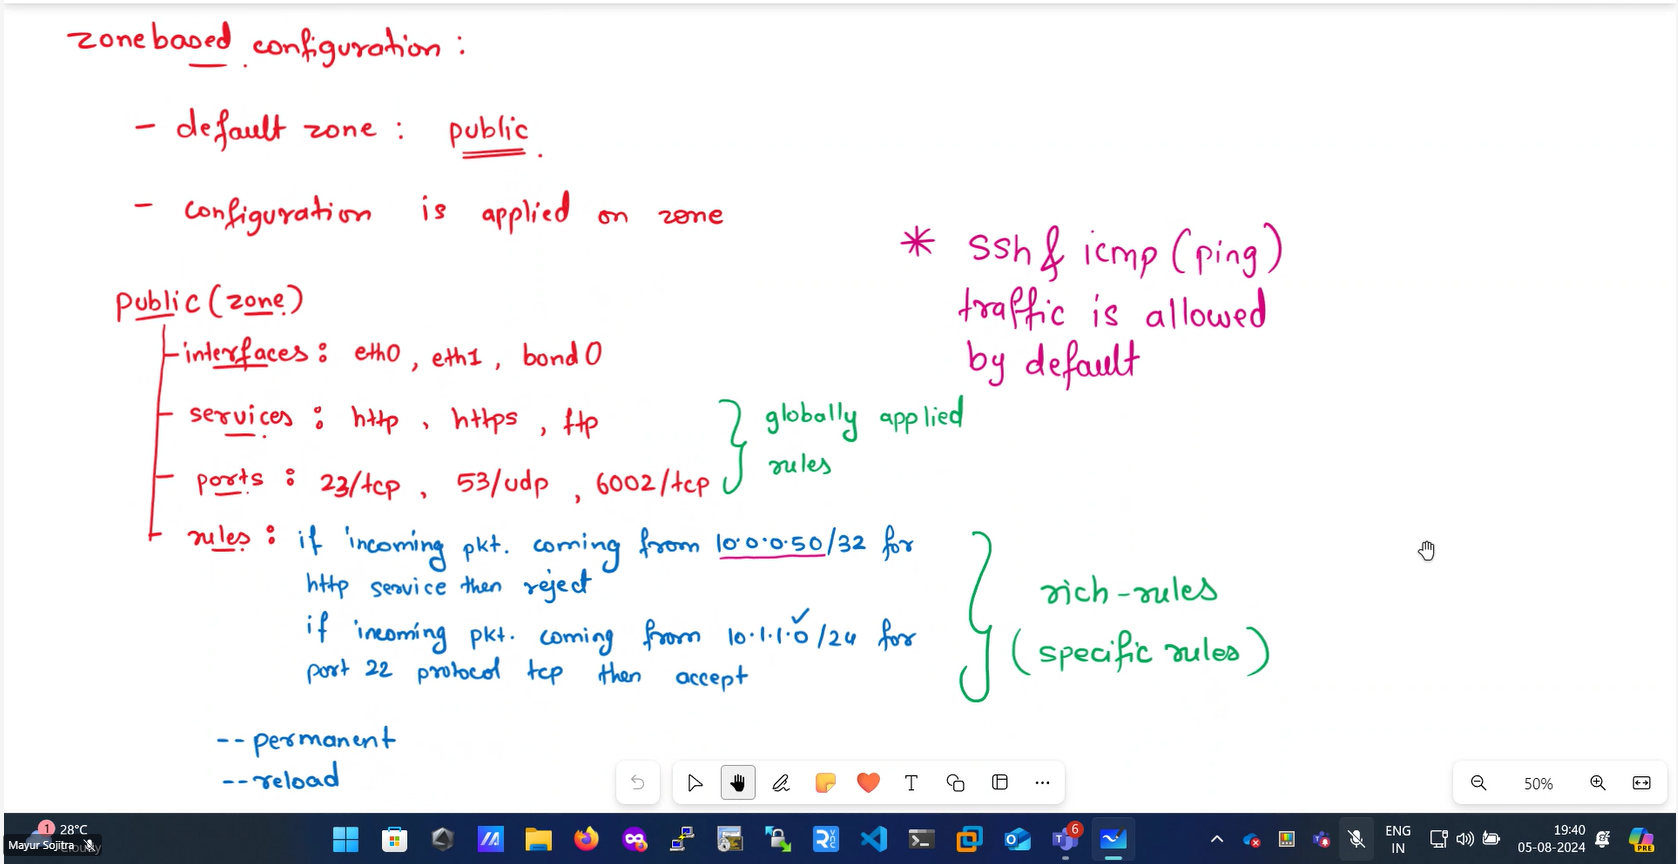 zone based configuration :
- default zone : public
- configuration is applied on zone
* ssh & icmp (ping)
traffic is allowed
by default
public (zone)
interfaces : eth0 , eth1 , bond 0
services : http , https , ftp
ports : 23/tcp , 53/udp , 6002/tcp
globally applied
rules
rules : if incoming pkt. coming from 10.0.0.50/32 for
http service then reject
if incoming pkt. coming from 10.1.1.0/24 for
port 22 protocol tcp then accept
rich-rules
(specific rules)
--permanent
--reload
50%
1
28°C
Mayur Sojitra
6
ENG
IN
19:40
05-08-2024
PRE